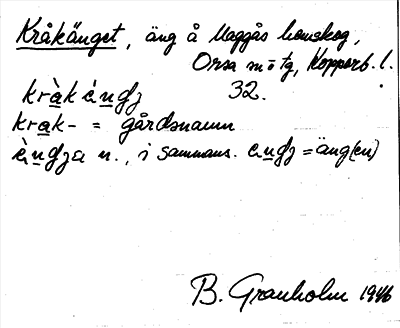 Kråkänget, äng å Maggås hemskog,
Orsa sn o tg, Kopparb. l.
kràk èngʒ 32.
krak- = gårdsnamn
èngʒa n., i sammans. engʒ = äng(en)
B. Granholm 1946